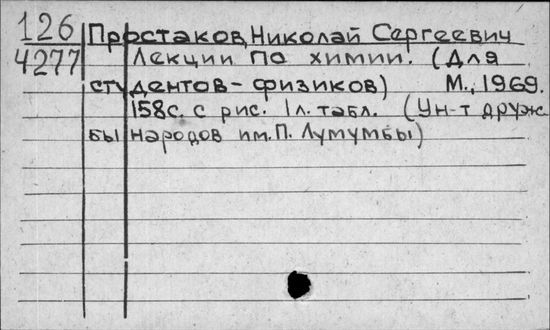 126 Простаков, Николай Сергеевич
4277 Лекции по химии. (Для
студентов-физиков) М., 1969.
158с. с рис. 1л. табл. (Ун-т друж
бы народов им. П. Лумумбы)